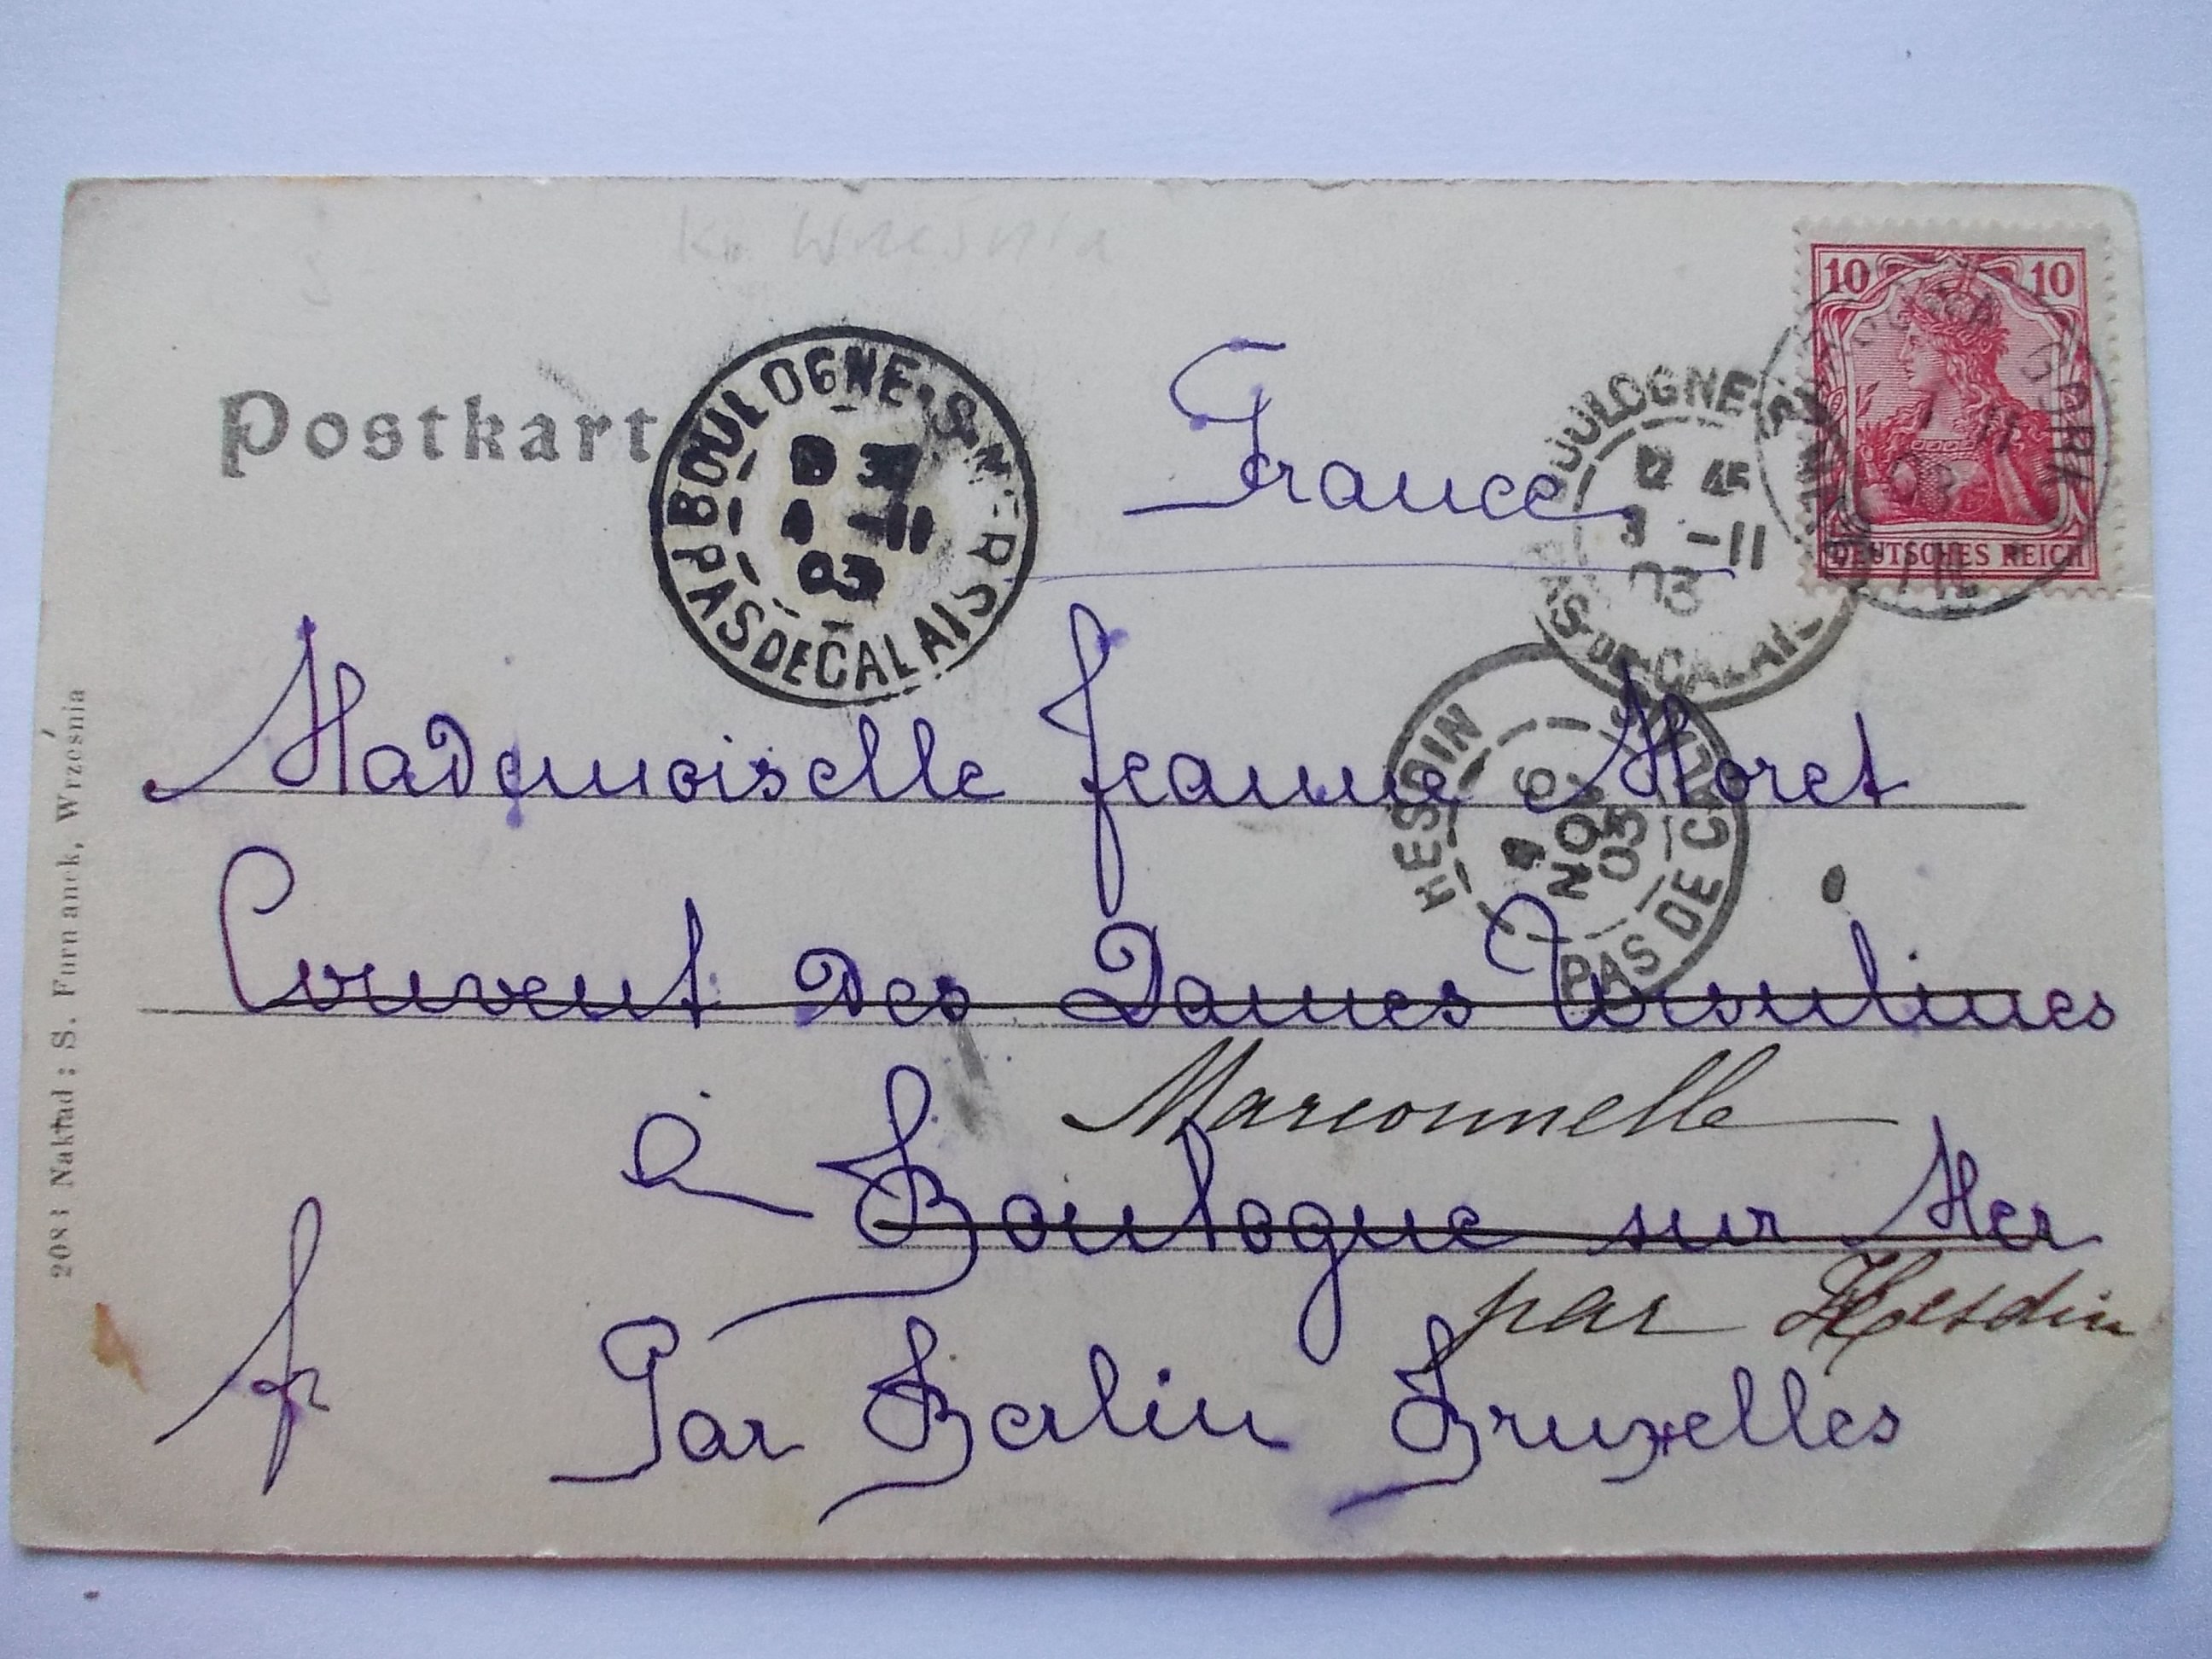 Kr. Września
Postkart
BOULOGNE-S-MER
4 -11
03
PAS DE CALAIS
France
BOULOGNE-S-MER
12 45
3 -11
03
PAS-DE-CALAIS
10 10
11
03
DEUTSCHES REICH
Mademoiselle Jeanne Moret
HESDIN
6
NOV
03
PAS DE CALAIS
Couvent des Dames Ursulines
Marconnelle
à Boulogne sur Mer
par Hesdin
Par Berlin Bruxelles
2083 Nakład: S. Furmanek, Września